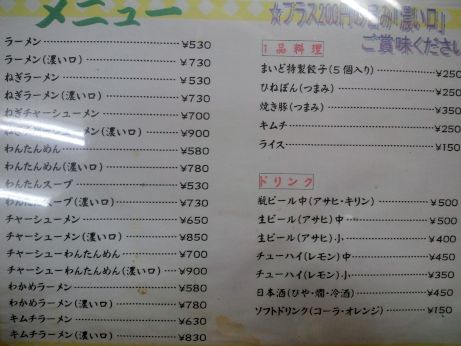 メニュー
ラーメン ¥530
ラーメン(濃い口) ¥730
ねぎラーメン ¥530
ねぎラーメン(濃い口) ¥730
ねぎチャーシューメン ¥700
ねぎチャーシューメン(濃い口) ¥900
わんたんめん ¥580
わんたんめん(濃い口) ¥780
わんたんスープ ¥530
わんたんスープ(濃い口) ¥730
チャーシューメン ¥650
チャーシューメン(濃い口) ¥850
チャーシューわんたんめん ¥700
チャーシューわんたんめん(濃い口) ¥900
わかめラーメン ¥580
わかめラーメン(濃い口) ¥780
キムチラーメン ¥630
キムチラーメン(濃い口) ¥830
☆プラス200円の旨み「濃い口」
ご賞味ください
1品料理
まいど特製餃子(5個入り) ¥250
ひねぽん(つまみ) ¥250
焼き豚(つまみ) ¥350
キムチ ¥250
ライス ¥150
ドリンク
瓶ビール中(アサヒ・キリン) ¥500
生ビール(アサヒ)中 ¥500
生ビール(アサヒ)小 ¥400
チューハイ(レモン)中 ¥450
チューハイ(レモン)小 ¥350
日本酒(ひや・燗・冷酒) ¥450
ソフトドリンク(コーラ・オレンジ) ¥150